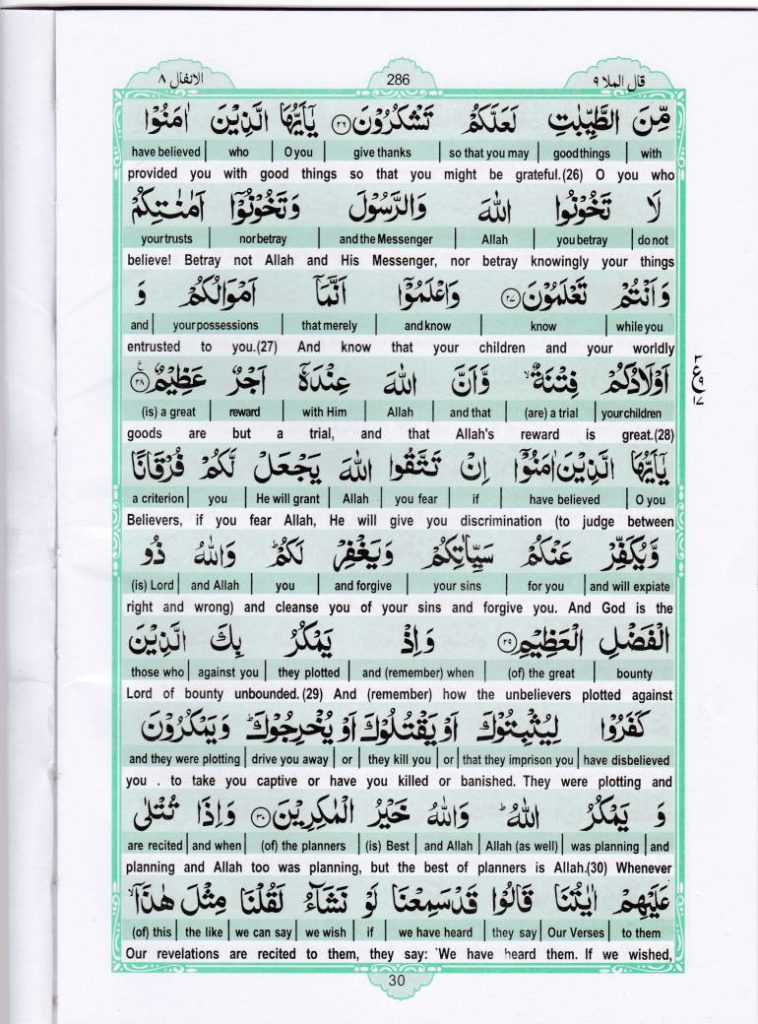 الانفال ٨ 286 قال الملا ٩
مِّنَ الطَّيِّبٰتِ لَعَلَّكُمْ تَشْكُرُوْنَ ﴿٢٦﴾ يٰۤاَيُّهَا الَّذِيْنَ اٰمَنُوْا
have believed | who | O you | give thanks | so that you may | good things | with
provided you with good things so that you might be grateful.(26) O you who
لَا تَخُوْنُوا اللّٰهَ وَالرَّسُوْلَ وَتَخُوْنُوْۤا اَمٰنٰتِكُمْ
your trusts | nor betray | and the Messenger | Allah | you betray | do not
believe! Betray not Allah and His Messenger, nor betray knowingly your things
وَاَنْتُمْ تَعْلَمُوْنَ ﴿٢٧﴾ وَاعْلَمُوْۤا اَنَّمَاۤ اَمْوَالُكُمْ وَ
and | your possessions | that merely | and know | know | while you
entrusted to you.(27) And know that your children and your worldly
اَوْلَادُكُمْ فِتْنَةٌ ۙ وَّاَنَّ اللّٰهَ عِنْدَهٗۤ اَجْرٌ عَظِيْمٌ ﴿٢٨﴾ ع
(is) a great | reward | with Him | Allah | and that | (are) a trial | your children
goods are but a trial, and that Allah's reward is great.(28)
يٰۤاَيُّهَا الَّذِيْنَ اٰمَنُوْۤا اِنْ تَتَّقُوا اللّٰهَ يَجْعَلْ لَّكُمْ فُرْقَانًا
a criterion | you | He will grant | Allah | you fear | if | have believed | O you
Believers, if you fear Allah, He will give you discrimination (to judge between
وَّيُكَفِّرْ عَنْكُمْ سَيِّاٰتِكُمْ وَيَغْفِرْ لَكُمْ ؕ وَاللّٰهُ ذُو
(is) Lord | and Allah | you | and forgive | your sins | for you | and will expiate
right and wrong) and cleanse you of your sins and forgive you. And God is the
الْفَضْلِ الْعَظِيْمِ ﴿٢٩﴾ وَاِذْ يَمْكُرُ بِكَ الَّذِيْنَ
those who | against you | they plotted | and (remember) when | (of) the great | bounty
Lord of bounty unbounded.(29) And (remember) how the unbelievers plotted against
كَفَرُوْا لِيُثْبِتُوْكَ اَوْ يَقْتُلُوْكَ اَوْ يُخْرِجُوْكَ ؕ وَيَمْكُرُوْنَ
and they were plotting | drive you away | or | they kill you | or | that they imprison you | have disbelieved
you . to take you captive or have you killed or banished. They were plotting and
وَ يَمْكُرُ اللّٰهُ ؕ وَاللّٰهُ خَيْرُ الْمٰكِرِيْنَ ﴿٣٠﴾ وَاِذَا تُتْلٰى
are recited | and when | (of) the planners | (is) Best | and Allah | Allah (as well) | was planning | and
planning and Allah too was planning, but the best of planners is Allah.(30) Whenever
عَلَيْهِمْ اٰيٰتُنَا قَالُوْا قَدْ سَمِعْنَا لَوْ نَشَآءُ لَقُلْنَا مِثْلَ هٰذَاۤ ۙ
(of) this | the like | we can say | we wish | if | we have heard | they say | Our Verses | to them
Our revelations are recited to them, they say: 'We have heard them. If we wished,
30